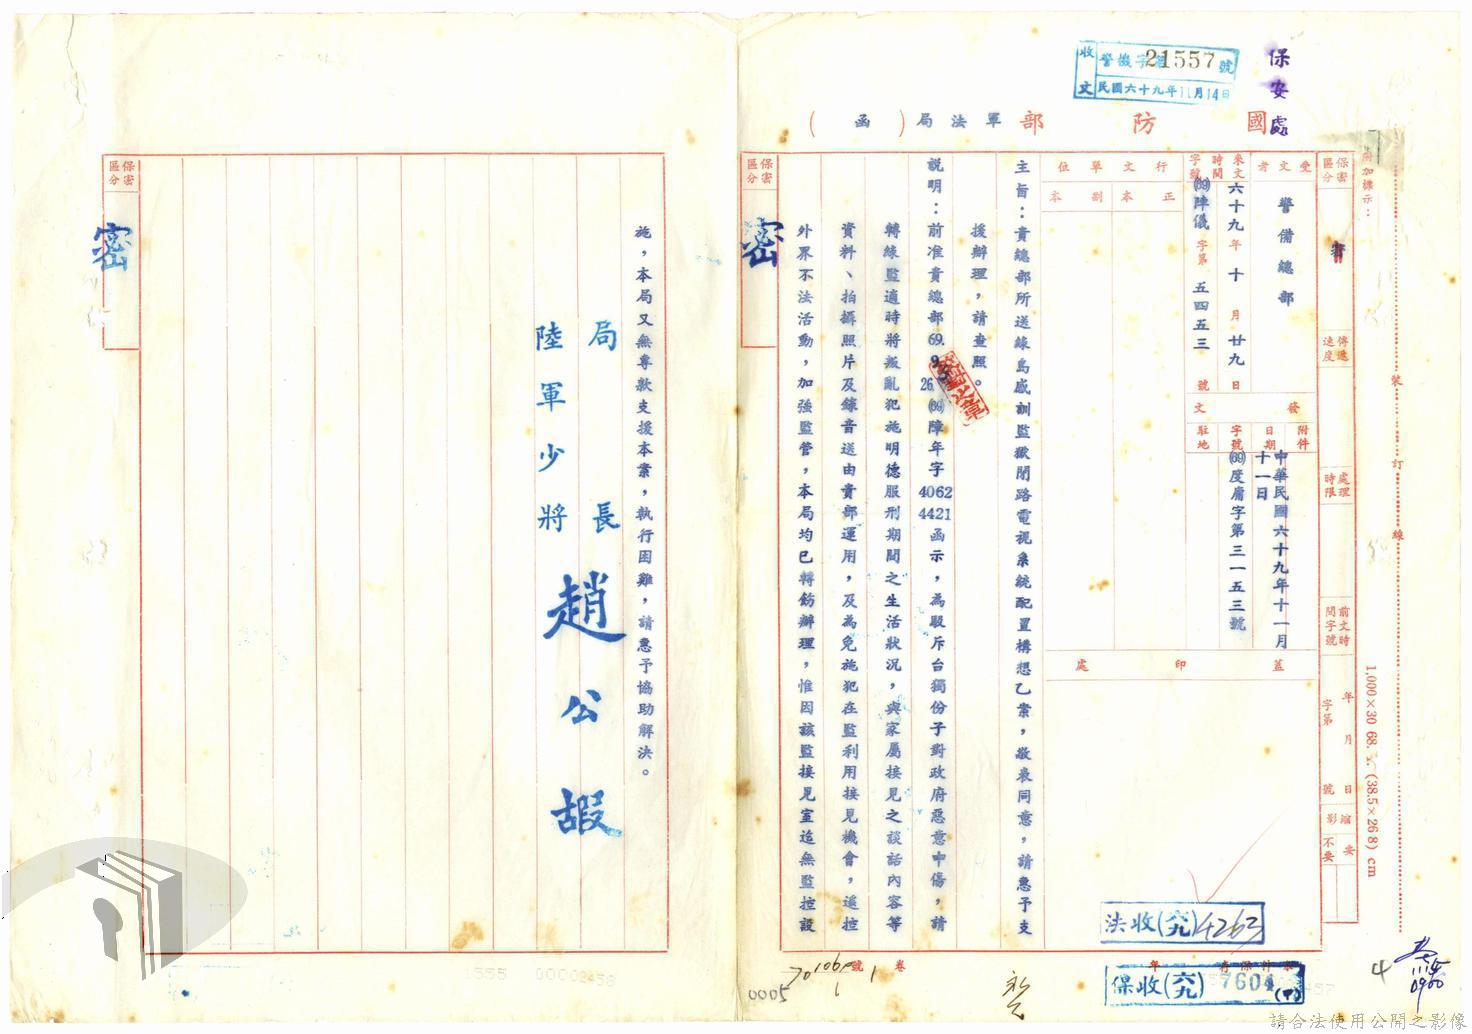 保安處
收文 警機字第21557號
民國六十九年11月14日
國防部軍法局（函）
附加標示：
保密區分 密
傳遞速度
處理時限
前文時間字號 年 月 日 字第 號
縮影 要 不要
受文者 警備總部
來文 時間 六十九年十月廿九日
字號 (69)障儀字第五四五三號
發文
附件
日期 中華民國六十九年十一月十一日
字號 (69)度庸字第三一五三號
駐地
行文單位
正本
副本
蓋印處
主旨：貴總部所送綠島感訓監獄閉路電視系統配置構想乙案，敬表同意，請惠予支
援辦理，請查照。
說明：前准貴總部69. 9. 26. (69)障年字4062 4421函示，為駁斥台獨份子對政府惡意中傷，請
轉綠監適時將叛亂犯施明德服刑期間之生活狀況，與家屬接見之談話內容等
資料、拍攝照片及錄音送由貴部運用，及為免施犯在監利用接見機會，遙控
外界不法活動，加強監管，本局均已轉飭辦理，惟因該監接見室迄無監控設
保密區分
密
施，本局又無專款支援本案，執行困難，請惠予協助解決。
局長
陸軍少將
趙公嘏
保密區分
密
裝訂線
1,000×30 68. (38.5×26.8) cm
法收(究)4263
保收(究)7604
卷號
0005
1555 00002458
4
0900
請合法使用公開之影像